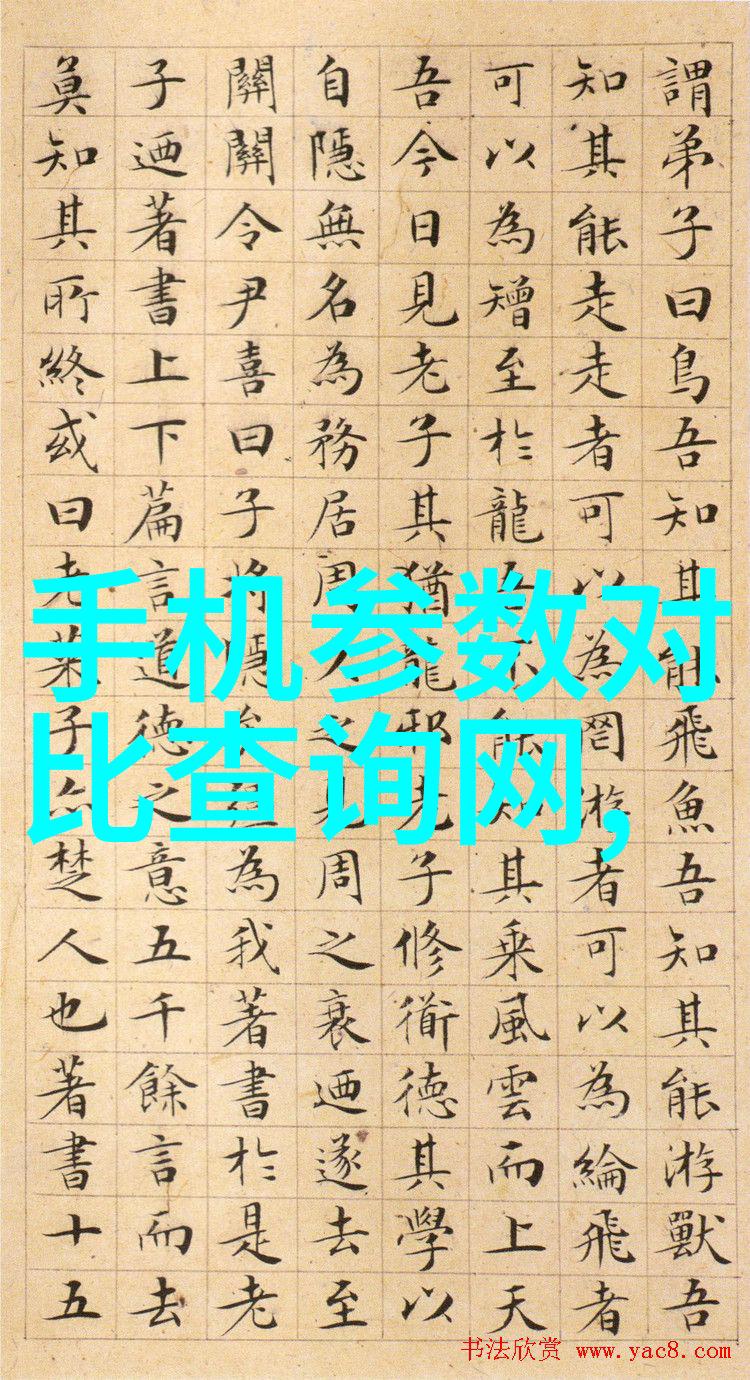 謂弟子曰鳥吾知其能飛魚吾知其能游獸吾
知其能走走者可以為罔游者可以為綸飛者
可以為矰至於龍吾不能知其乘風雲而上天
吾今日見老子其猶龍邪老子修衜德其學以
自隱無名為務居周久之見周之衰迺遂去至
關關令尹喜曰子將隱矣彊為我著書於是老
子迺著書上下篇言道德之意五千餘言而去
莫知其所終或曰老萊子亦楚人也著書十五
手机参数对
比查询网,
书法欣赏 www.yac8.com